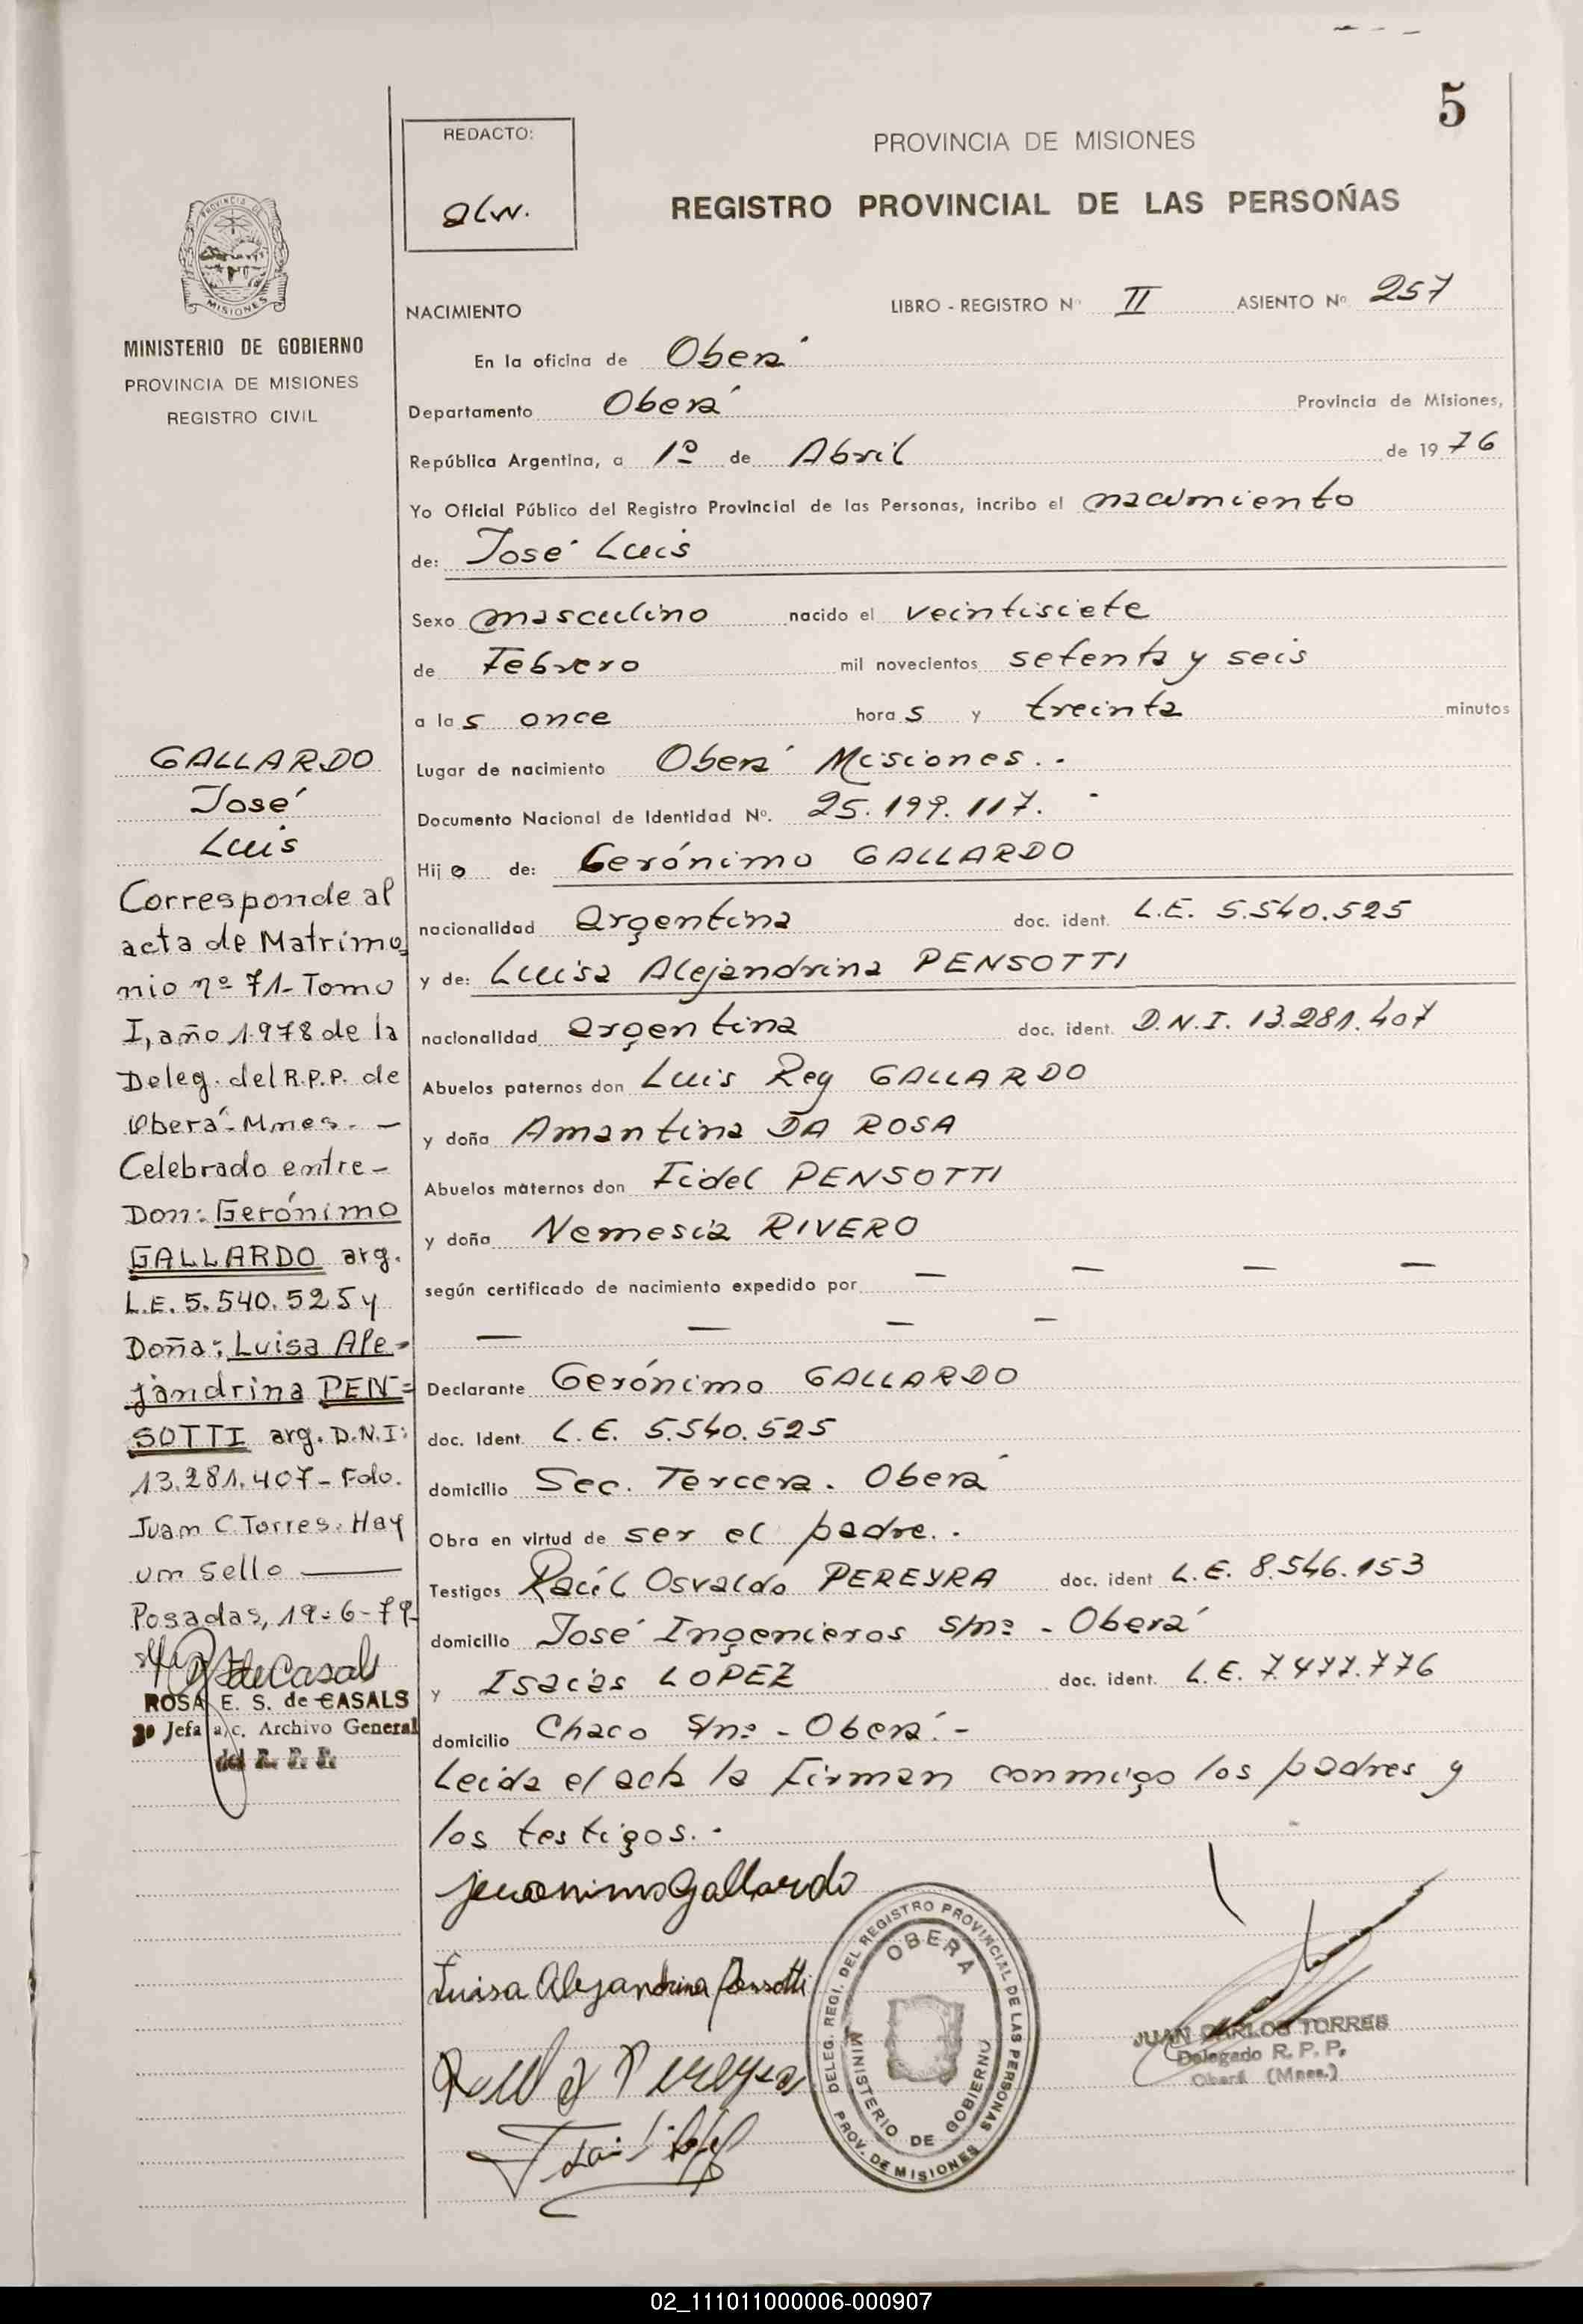 5
REDACTO:
PROVINCIA DE MISIONES
REGISTRO PROVINCIAL DE LAS PERSOÑAS
MISIONES
MINISTERIO DE GOBIERNO
PROVINCIA DE MISIONES
REGISTRO CIVIL
NACIMIENTO LIBRO - REGISTRO Nº II ASIENTO Nº 257
En la oficina de Oberá
Departamento Oberá Provincia de Misiones,
República Argentina, a 1º de Abril de 1976
Yo Oficial Público del Registro Provincial de las Personas, incribo el nacimiento
de: José Luis
Sexo masculino nacido el veintisiete
de Febrero mil novecientos setenta y seis
a las once horas y treinta minutos
Lugar de nacimiento Oberá Misiones.-
Documento Nacional de Identidad Nº. 25.199.117.-
Hijo de: Gerónimo GALLARDO
nacionalidad argentina doc. ident. L.E. 5.540.525
y de: Luisa Alejandrina PENSOTTI
nacionalidad argentina doc. ident. D.N.I. 13.281.407
Abuelos paternos don Luis Rey GALLARDO
y doña Amantina DA ROSA
Abuelos maternos don Fidel PENSOTTI
y doña Nemesia RIVERO
según certificado de nacimiento expedido por — — — —
— — — —
Declarante Gerónimo GALLARDO
doc. Ident. L.E. 5.540.525
domicilio Sec. Tercera. Oberá
Obra en virtud de ser el padre.-
Testigos Raúl Osvaldo PEREYRA doc. ident L.E. 8.546.153
domicilio José Ingenieros s/nº - Oberá
y Isaías LOPEZ doc. ident. L.E. 7.477.776
domicilio Chaco s/nº - Oberá.-
Leida el acta la firman conmigo los padres y
los testigos.-
GALLARDO
José
Luis
Corresponde al
acta de Matrimo
nio nº 71- Tomo
I, año 1.978 de la
Deleg. del R.P.P. de
Oberá- Mnes. —
Celebrado entre-
Don: Gerónimo
GALLARDO arg.
L.E. 5.540.525 y
Doña: Luisa Ale-
jandrina PEN=
SOTTI arg. D.N.I:
13.281.407- Fdo.
Juan C. Torres. Hay
un sello ———
Posadas, 19-6-79-
ROSA E. S. de CASALS
Jefa a/c. Archivo General
del R. P. P.
Jeronimo Gallardo
Luisa Alejandrina Pensotti
DELEG. REGI. DEL REGISTRO PROVINCIAL DE LAS PERSONAS
OBERA
MINISTERIO DE GOBIERNO
PROV. DE MISIONES
JUAN CARLOS TORRES
Delegado R. P. P.
Oberá (Mnes.)
02_111011000006-000907